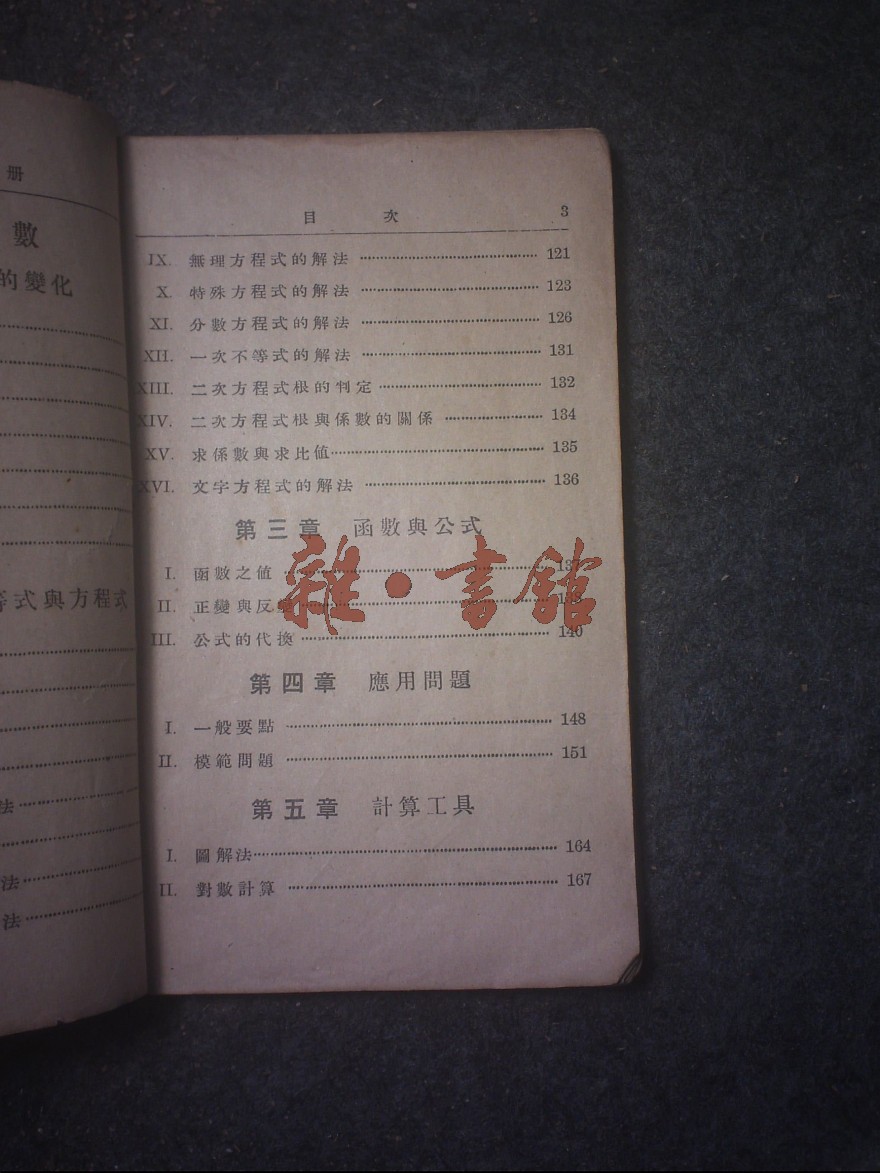 册
數
的變化
等式與方程式
法
法
法
目 次 3
IX. 無理方程式的解法 121
X. 特殊方程式的解法 123
XI. 分數方程式的解法 126
XII. 一次不等式的解法 131
XIII. 二次方程式根的判定 132
XIV. 二次方程式根與係數的關係 134
XV. 求係數與求比値 135
XVI. 文字方程式的解法 136
第三章 函數與公式
I. 函數之値 137
II. 正變與反變 138
III. 公式的代換 140
雜·書館
第四章 應用問題
I. 一般要點 148
II. 模範問題 151
第五章 計算工具
I. 圖解法 164
II. 對數計算 167